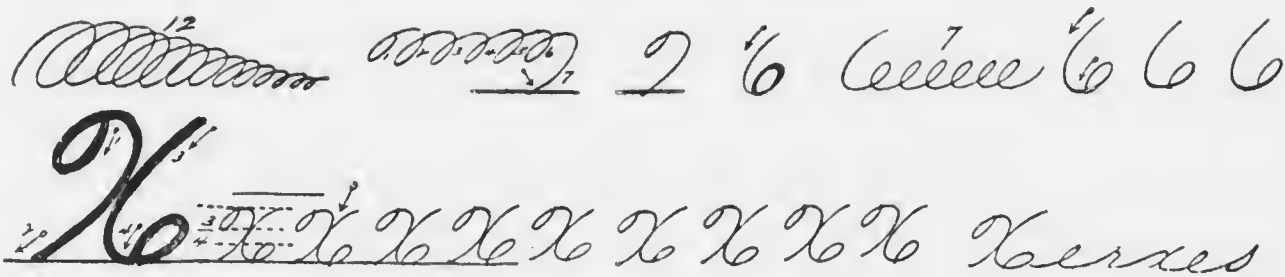 12 1 2 3 4 5 6 7 2 6 7 6 6 6
X 1 2 3 4 3 4 X X X X X X X X X Xerxes